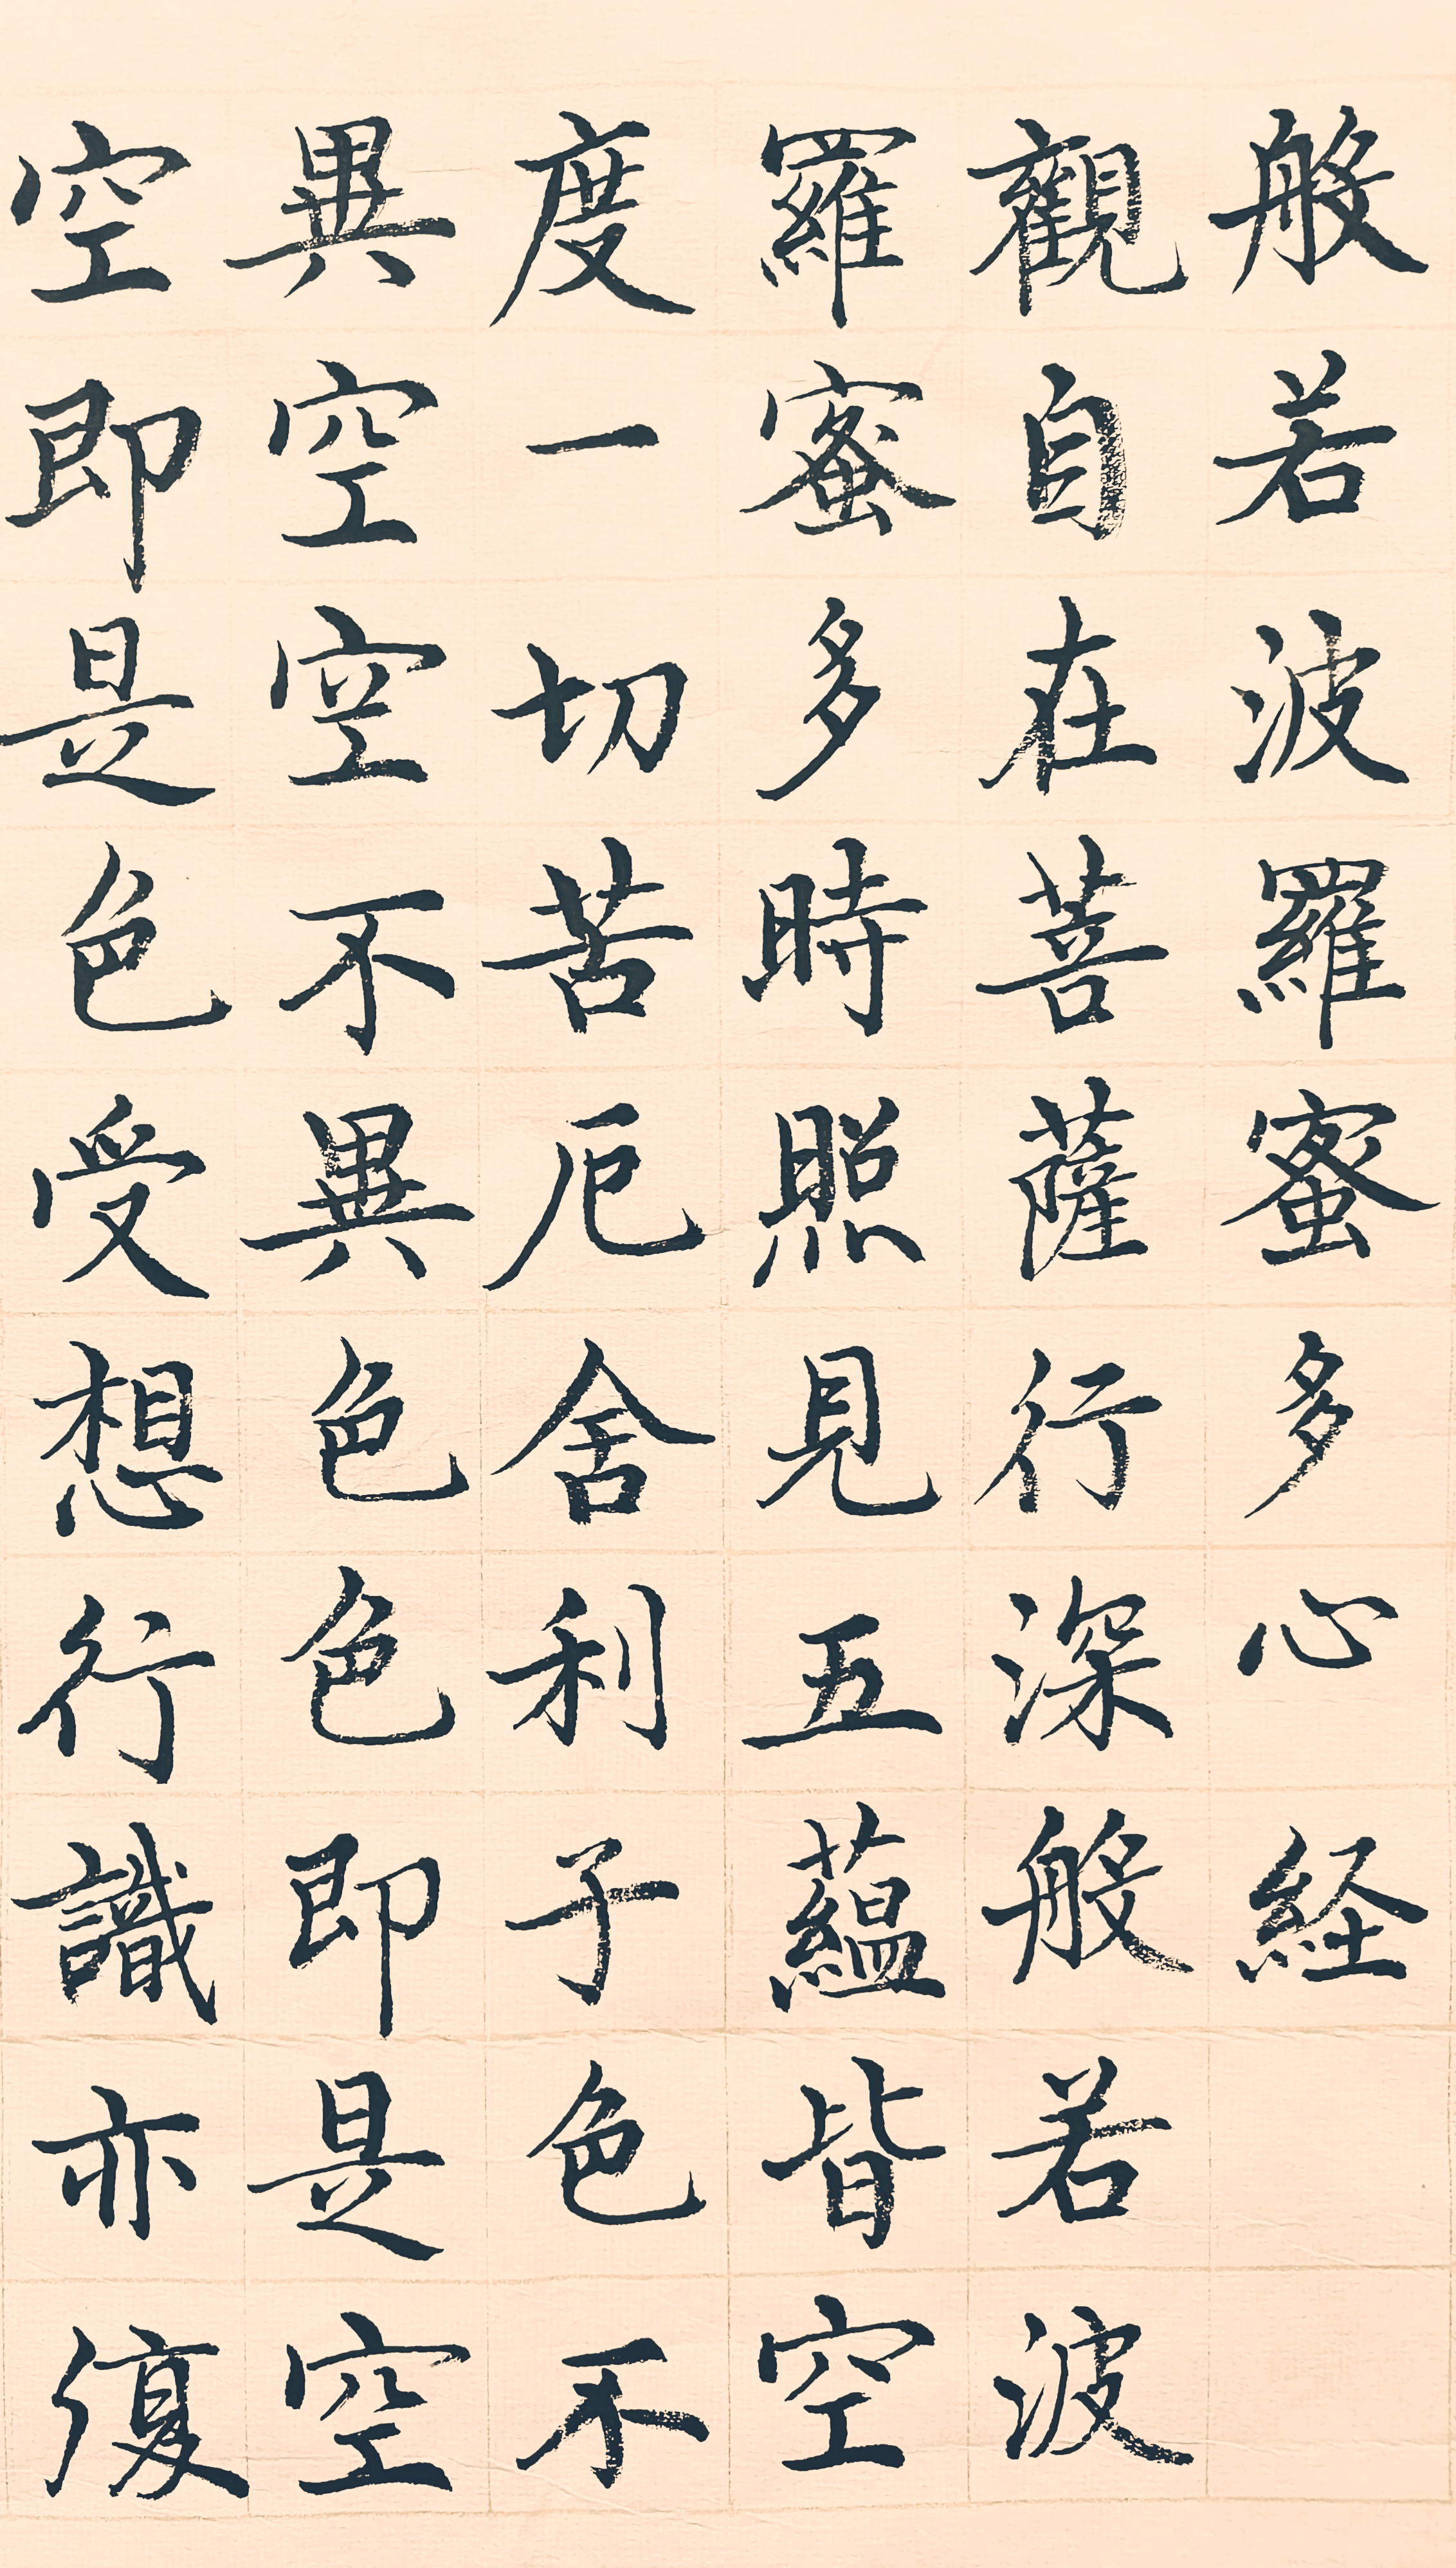 般若波羅蜜多心経
觀自在菩薩行深般若波
羅蜜多時照見五蘊皆空
度一切苦厄舍利子色不
異空空不異色色即是空
空即是色受想行識亦復